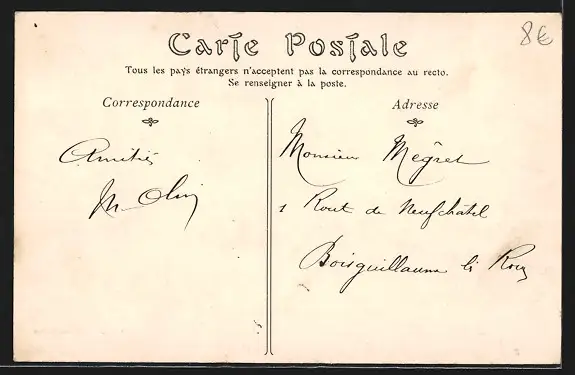 8€
Carte Postale
Tous les pays étrangers n'acceptent pas la correspondance au recto.
Se renseigner à la poste.
Correspondance
Amitiés
M. Olin
Adresse
Monsieur Mégret
1 Route de Neufchatel
Boisguillaume lès Rouen